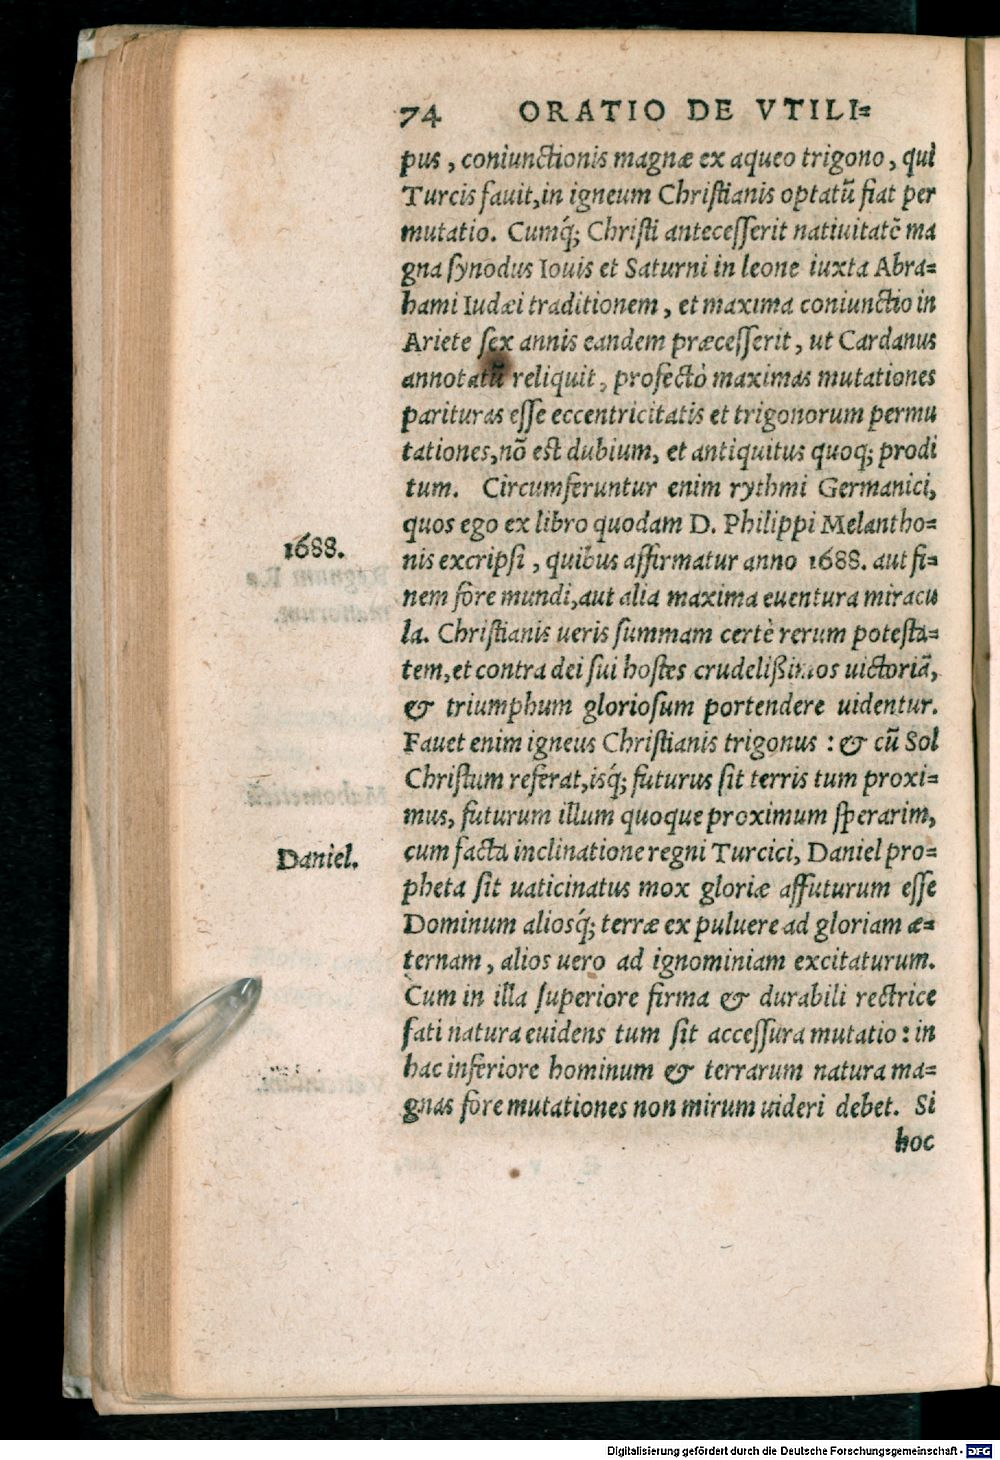 74 ORATIO DE VTILI=
pus, coniunctionis magnæ ex aqueo trigono, qui
Turcis fauit, in igneum Christianis optatũ fiat per
mutatio. Cumq́; Christi antecesserit natiuitatẽ ma
gna synodus Iouis et Saturni in leone iuxta Abra=
hami Iudæi traditionem, et maxima coniunctio in
Ariete sex annis eandem præcesserit, ut Cardanus
annotatũ reliquit, profectò maximas mutationes
parituras esse eccentricitatis et trigonorum permu
tationes, nõ est dubium, et antiquitus quoq; prodi
tum. Circumferuntur enim rythmi Germanici,
quos ego ex libro quodam D. Philippi Melantho=
1688.
nis excripsi, quibus affirmatur anno 1688. aut fi=
nem fore mundi, aut alia maxima euentura miracu
la. Christianis ueris summam certè rerum potesta=
tem, et contra dei sui hostes crudelißimos uictoriã,
& triumphum gloriosum portendere uidentur.
Fauet enim igneus Christianis trigonus: & cũ Sol
Christum referat, isq́; futurus sit terris tum proxi=
mus, futurum illum quoque proximum sperarim,
Daniel.
cum facta inclinatione regni Turcici, Daniel pro=
pheta sit uaticinatus mox gloriæ affuturum esse
Dominum aliosq́; terræ ex puluere ad gloriam æ=
ternam, alios uero ad ignominiam excitaturum.
Cum in illa superiore firma & durabili rectrice
fati natura euidens tum sit accessura mutatio: in
hac inferiore hominum & terrarum natura ma=
gnas fore mutationes non mirum uideri debet. Si
hoc
Digitalisierung gefördert durch die Deutsche Forschungsgemeinschaft - DFG